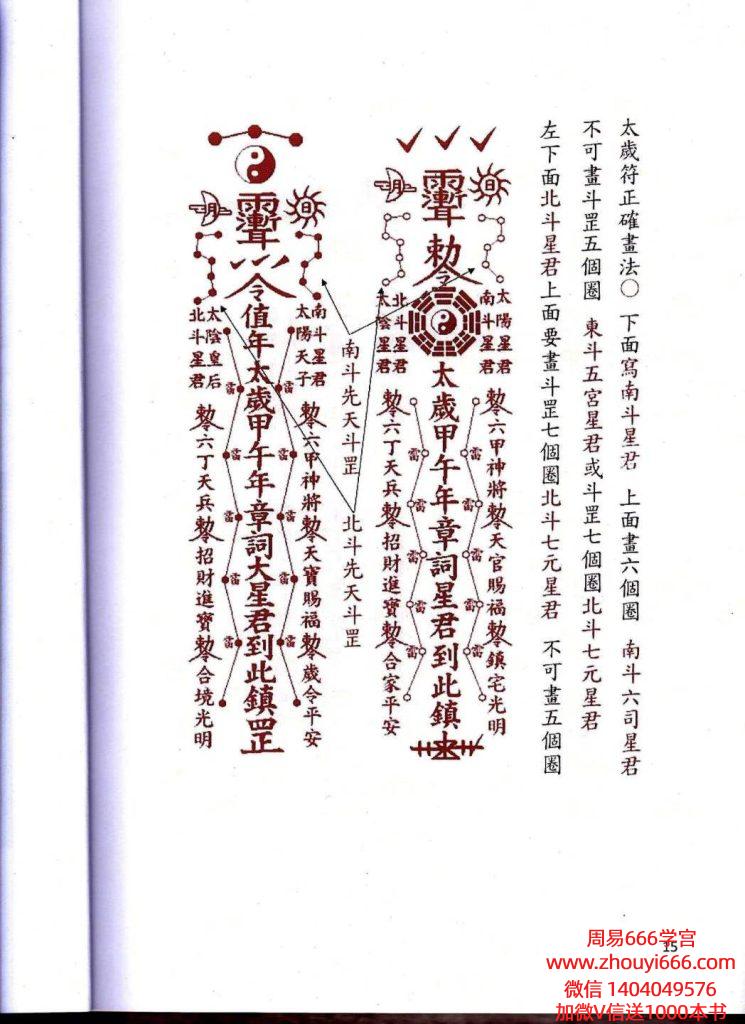 太歲符正確畫法〇 下面寫南斗星君 上面畫六個圈 南斗六司星君
不可畫斗罡五個圈 東斗五宮星君或斗罡七個圈北斗七元星君
左下面北斗星君上面要畫斗罡七個圈北斗七元星君 不可畫五個圈
日
月
勅令
太陽星君
南斗星君
北斗星君
太陰星君
太歲甲午年章詞星君到此鎮
勅令六甲神將勅令天官賜福勅令鎮宅光明
勅令六丁天兵勅令招財進寶勅令合家平安
雷 雷 雷 雷 雷
雷 雷 雷 雷 雷
南斗先天斗罡
北斗先天斗罡
日
月
令值年太歲甲午年章詞大星君到此鎮罡
南斗星君
太陽天子
太陰皇后
北斗星君
勅令六甲神將勅令天寶賜福勅令歲令平安
勅令六丁天兵勅令招財進寶勅令合境光明
雷 雷 雷 雷 雷
雷 雷 雷 雷 雷
15
周易666学宫
www.zhouyi666.com
微信 1404049576
加微V信送1000本书